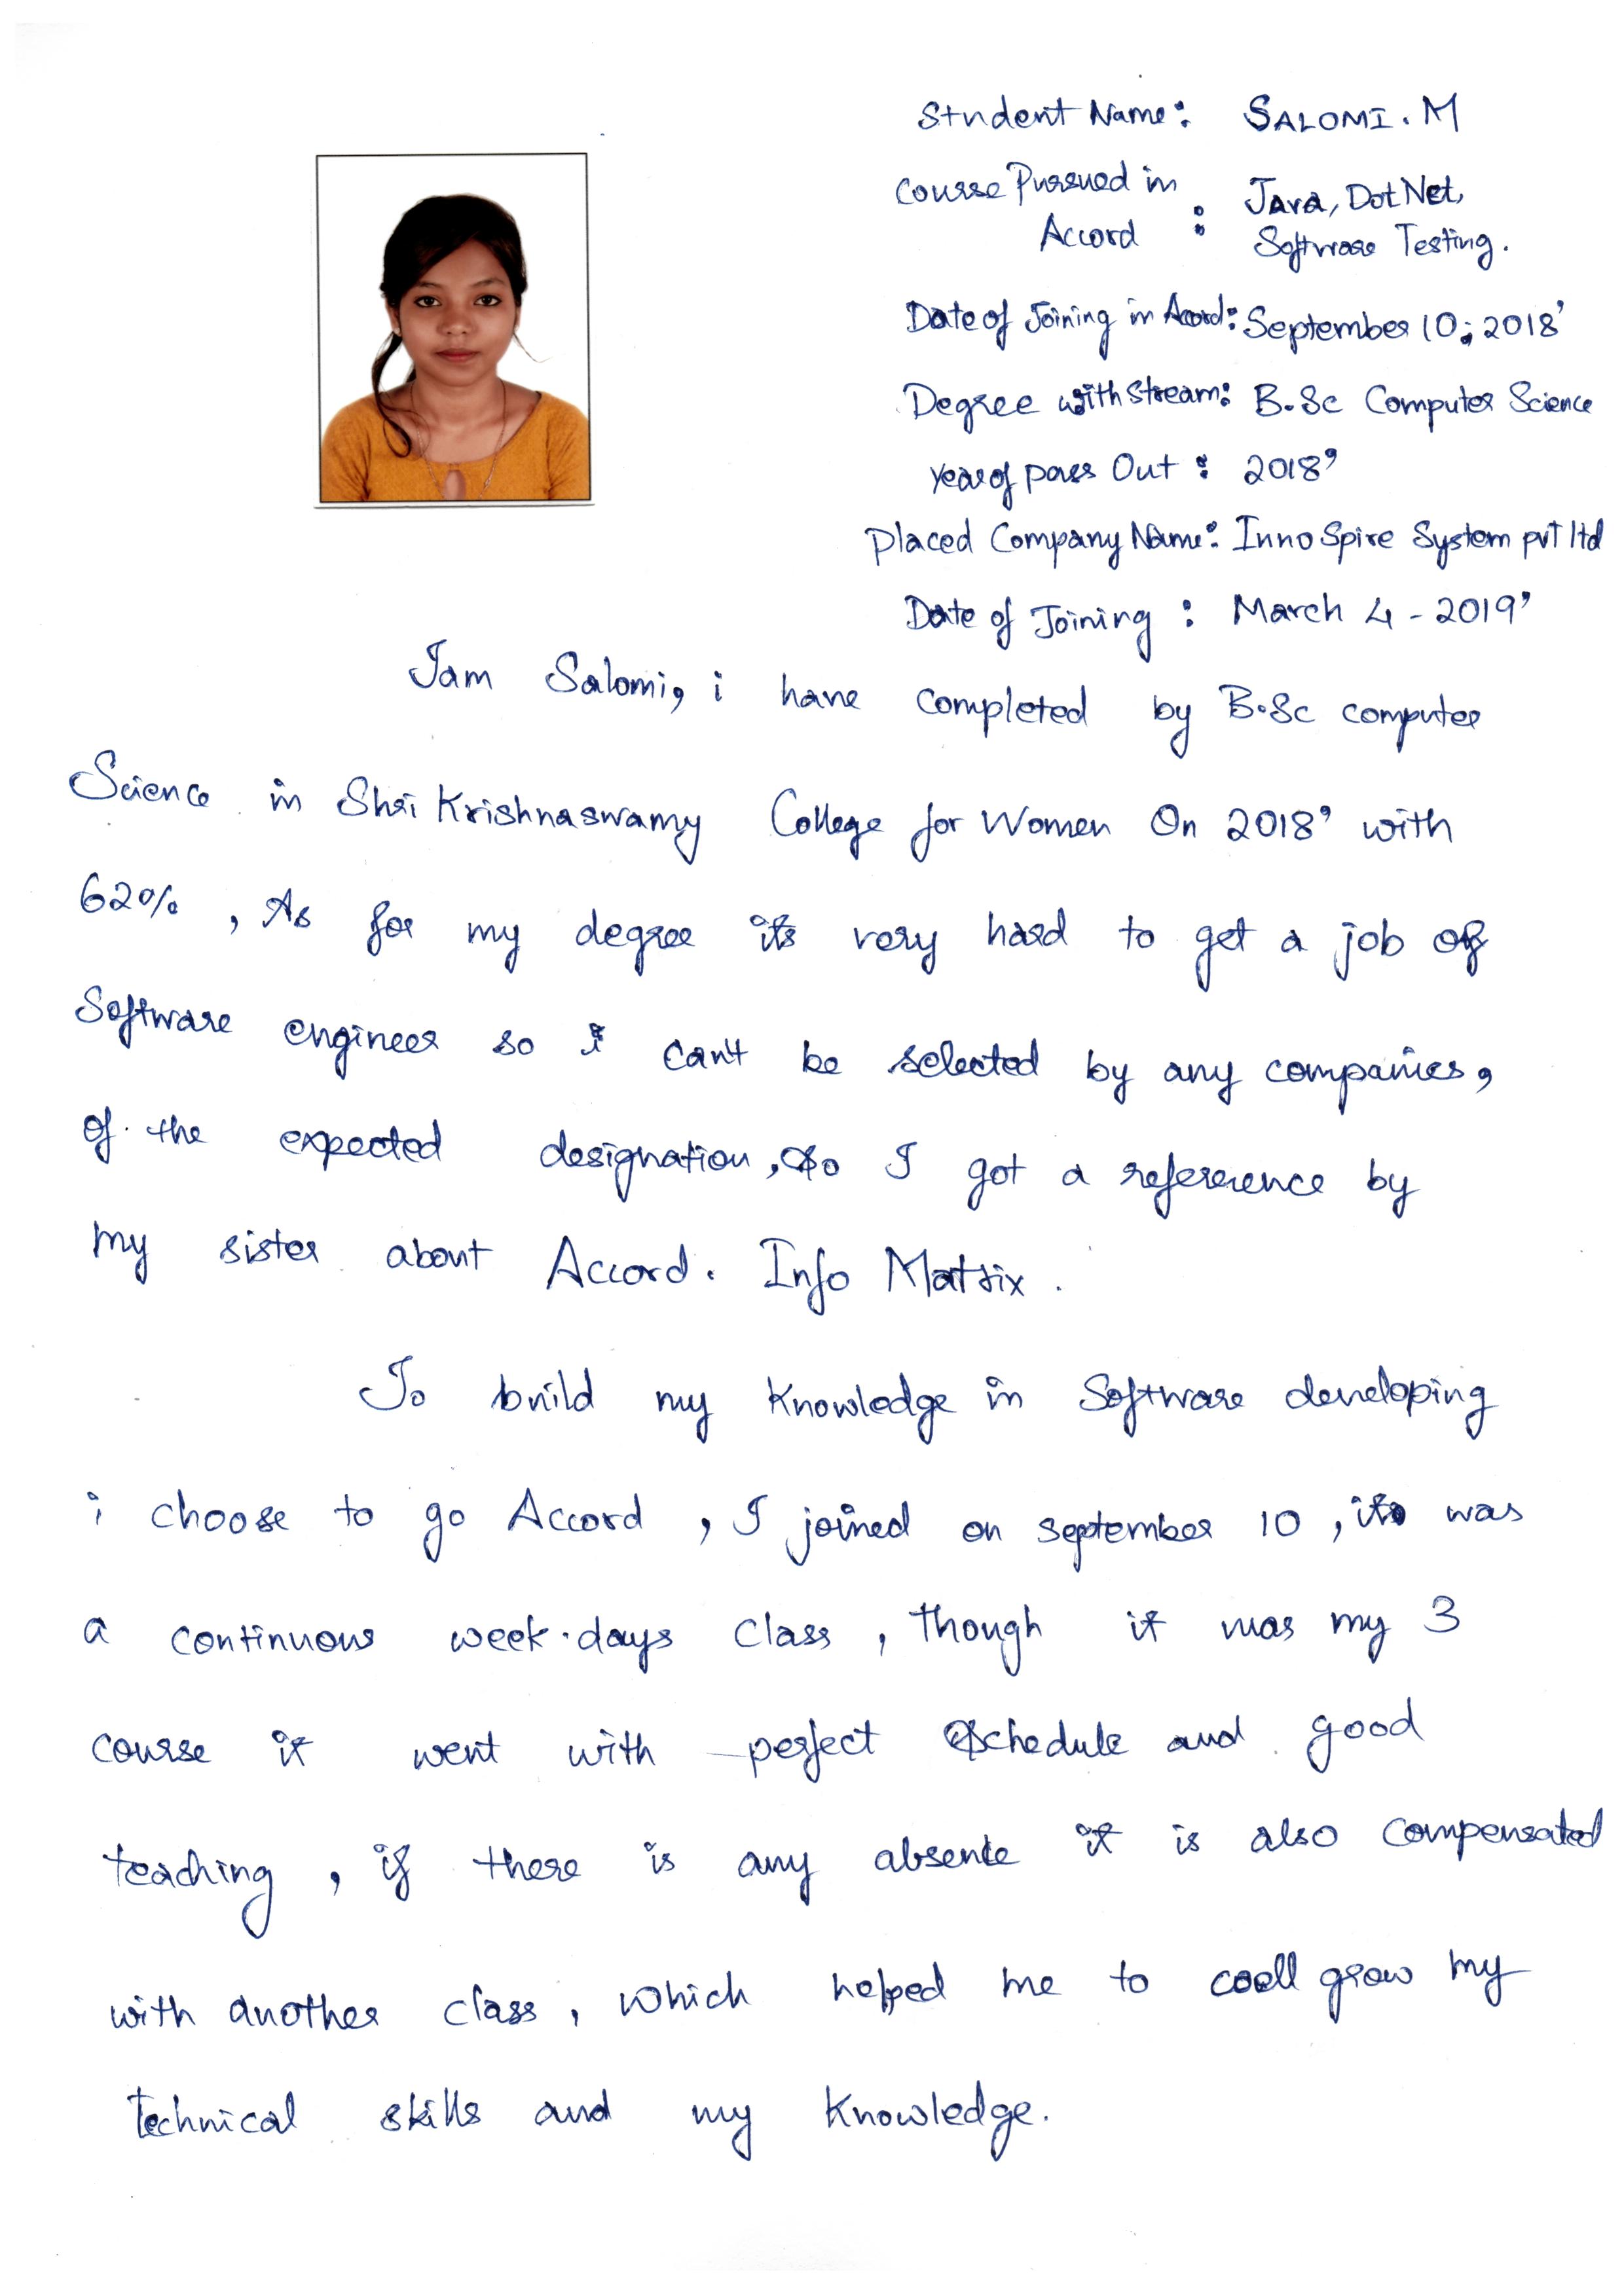 Student Name: SALOMI. M
Course Pursued in
Accord : Java, DotNet,
Software Testing.
Date of Joining in Accord: September 10, 2018'
Degree with Stream: B.Sc Computer Science
Year of pass Out : 2018'
Placed Company Name: Inno Spire System pvt ltd
Date of Joining : March 4 - 2019'
I am Salomi, i have completed by B.Sc computer
Science in Shri Krishnaswamy College for Women On 2018' with
62% , As for my degree its very hard to get a job of
Software engineer so i can't be selected by any companies,
of the expected designation, So I got a reference by
my sister about Accord. Info Matrix .
To build my Knowledge in Software developing
i choose to go Accord , I joined on september 10 , its was
a continuous week-days class , though it was my 3
course it went with perfect Schedule and good
teaching , if there is any absence it is also compensated
with another class , which helped me to grow my
technical skills and my Knowledge.